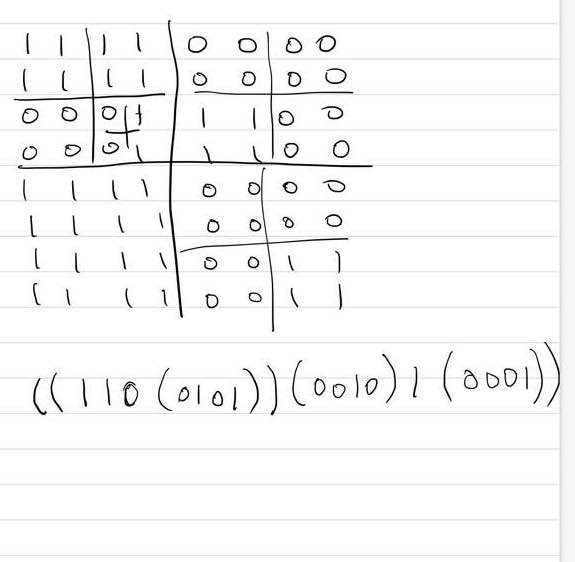 1 1 1 1 0 0 0 0
1 1 1 1 0 0 0 0
0 0 0 1 1 1 0 0
0 0 0 1 1 1 0 0
1 1 1 1 0 0 0 0
1 1 1 1 0 0 0 0
1 1 1 1 0 0 1 1
1 1 1 1 0 0 1 1
((110(0101))(0010)1(0001))